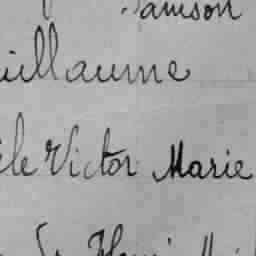 Samson
uillaume
ile Victor Marie